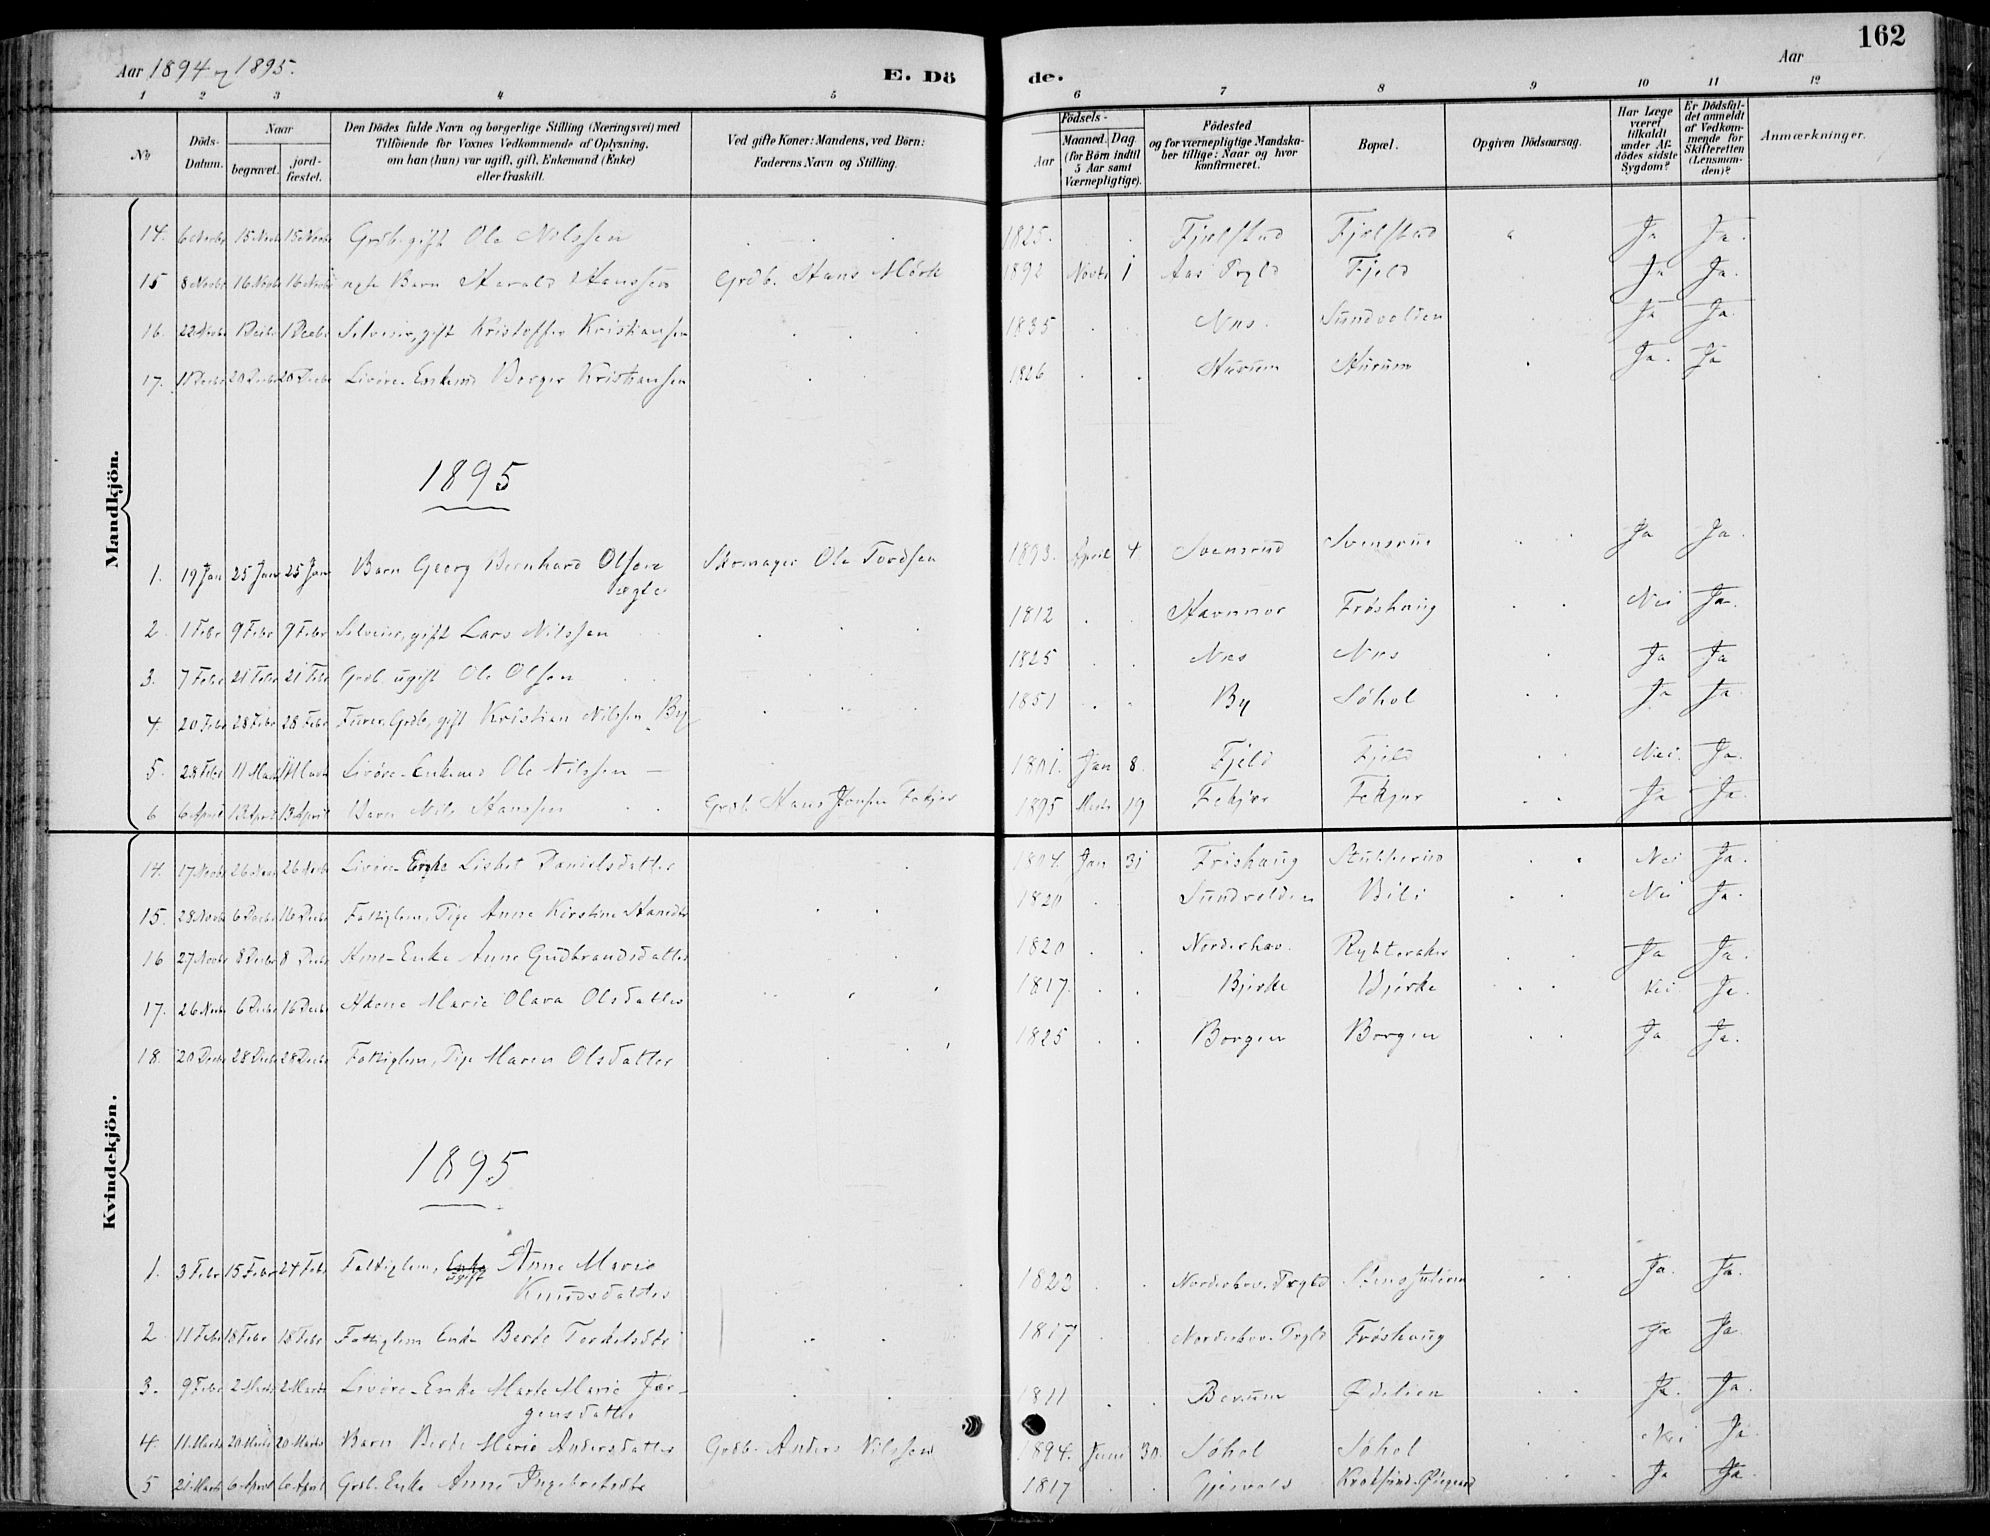 Aar 1894 og 1895.
E. Döde.
Aar
162
1 2 3 4 5 6 7 8 9 10 11 12
No
Döds-Datum.
Naar
begravet.
jordfæstet.
Den Dödes fulde Navn og borgerlige Stilling (Næringsvei) med
Tilföiende for Voxnes Vedkommende af Oplysning,
om han (hun) var ugift, gift, Enkemand (Enke)
eller fraskilt.
Ved gifte Koner: Mandens, ved Börn:
Faderens Navn og Stilling.
Födsels-
Aar
Maaned. Dag.
(for Börn indtil
5 Aar samt
Værnepligtige).
Födested
og for værnepligtige Mandska-
ber tillige: Naar og hvor
konfirmeret.
Bopæl.
Opgiven Dödsaarsag.
Har Læge
været
tilkaldt
under Af-
dödes sidste
Sygdom?
Er Dödsfal-
det anmeldt
af Vedkom-
mende for
Skifteretten
(Lensman-
den)?
Anmærkninger.
Mandkjön.
14. 6 Novbr 15 Novbr 15 Novbr Grdb. gift Ole Nilssen 1825. Fjelstad Fjelstad Ja Ja.
15 8 Novbr 16 Novbr 16 Novbr ægte Barn Harald Hanssen Grdb. Hans Mørk 1892 Novbr 1 Aas Prgld Fjeld Ja Ja.
16. 22 Novbr 1 Decbr 1 Decbr Selveier, gift Kristoffer Kristiansen 1835 Næs. Sundvolden Ja Ja.
17. 11 Decbr 20 Decbr 20 Decbr Livøre-Enkemd Borger Kristiansen 1826 Hurum Hurum Ja. Ja
1895
1. 19 Jan 25 Jan 25 Jan Barn Georg Bernhard Olsen
ægte Skomager Ole Tordsen 1893. April 4 Svensrud Svensrud Ja Ja.
2 1 Febr 9 Febr 9 Febr Selveier, gift Lars Nilssen 1812 Havnnor Frøshaug Nei Ja.
3. 7 Febr 21 Febr 21 Febr Grdb. ugift Ole Olsen 1825 Næs Næs Ja Ja
4. 20 Febr 28 Febr 28 Febr Furer, Grdb, gift Kristian Nilssen By 1851 By Søhol Ja Ja.
5. 28 Febr 11 Marts 11 Marts Livøre-Enkemd Ole Nilssen 1801. Jan 8. Fjeld Fjeld Nei. Ja.
6 6 April 13 April 13 April Barn Nils Hanssen Grdb. Hans Jonsen Fekjær 1895 Marts 19 Fekjær Fekjær Ja Ja.
Kvindekjön.
14. 17 Novbr 26 Novbr 26 Novbr Livøre-Enke Lisbet Danielsdatter 1804. Jan 31 Frøshaug Stubberud Nei Ja.
15. 28 Novbr 6 Decbr 16 Decbr Fattiglem, Pige Anne Kirstine Hansdtr 1820 Sundvolden Bili Nei Ja.
16 27 Novbr 8 Decbr 8 Decbr Hms-Enke Anne Gudbrandsdatter 1820 Norderhov. Rytteraker Ja Ja.
17. 26 Novbr 6 Decbr 16 Decbr Hkone Marie Olava Olsdatter 1817. Bjerke Bjerke Nei Ja.
18. 20 Decbr 28 Decbr 28 Decbr Fattiglem, Pige Maren Olsdatter 1825 Borgen Borgen Ja Ja.
1895
1. 3 Febr 15 Febr 24 Febr Fattiglem, Enke ugift Anne Marie
Knudsdatter 1822 Norderhov. Prgld Ja. Ja.
2 11 Febr 18 Febr 18 Febr Fattiglem Enke Berte Torkelsdtr 1817 Norderhov. Prgld Frøshaug Ja Ja.
3. 9 Febr 2 Marts 2 Marts Livøre-Enke Marte Marie Jør-
gensdatter 1811 Berum Ødelien Ja. Ja.
4. 11 Marts 20 Marts 20 Marts Barn Berte Marie Andersdatter Grdb. Anders Nilssen 1894. Juni 30. Søhol Søhol Nei Ja.
5 21 Marts 6 April 6 April Grdb. Enke Anne Ingebretsdtr 1817 Krokskund Ja Ja.